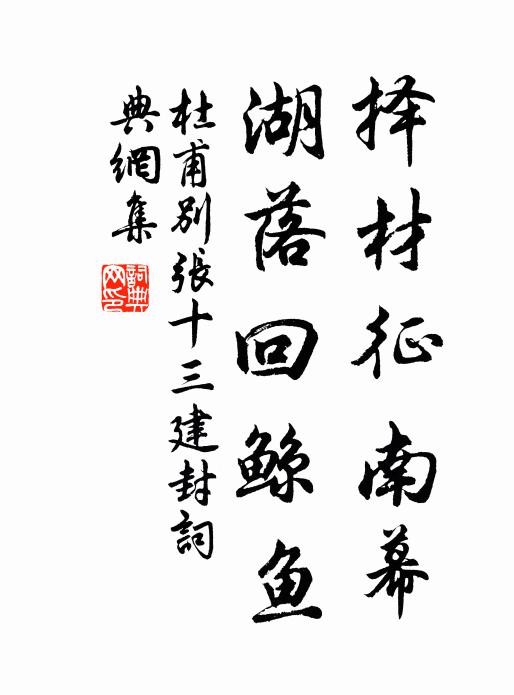 择材征南幕
湖落回鲸鱼
杜甫別張十三建封詞
典網集
詞典
网印